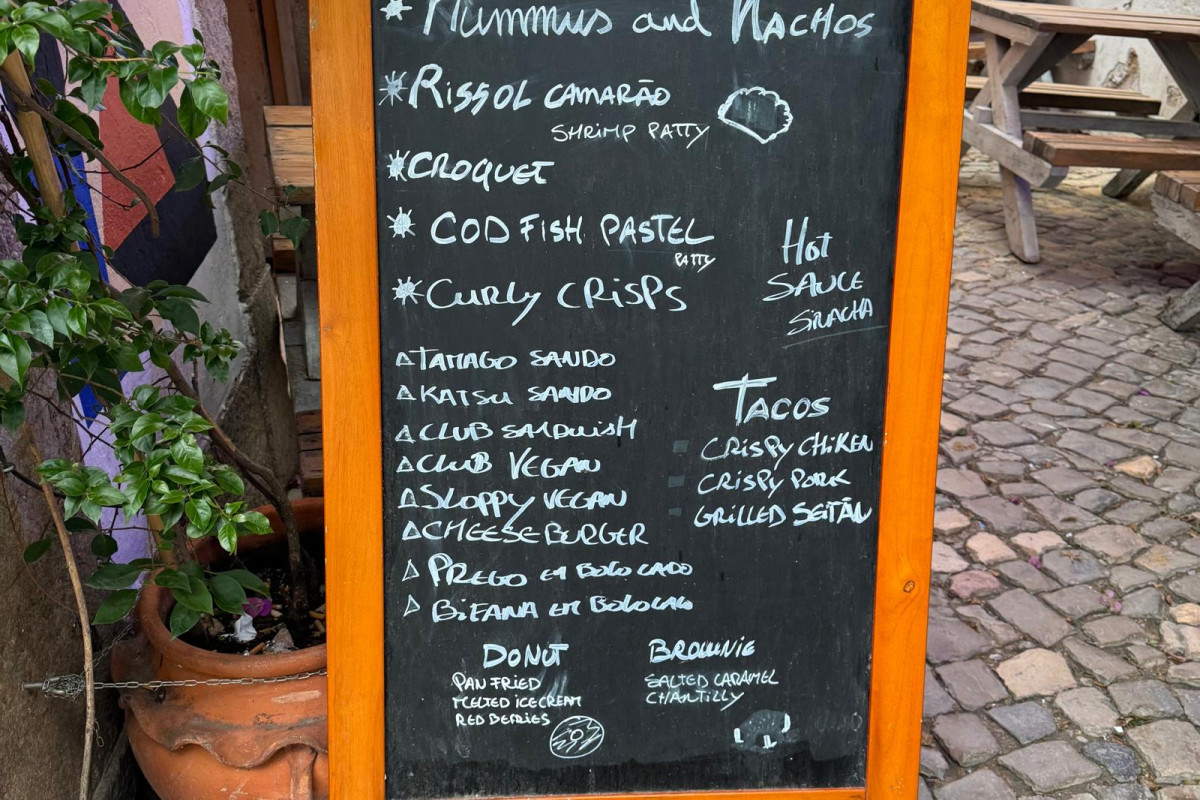 Hummus and Nachos
Rissol camarão
Shrimp patty
Croquet
Cod fish pastel
patty
Curly crisps
Hot
Sauce
Siracha
Tamago sando
Katsu sando
Club sandwish
Club vegan
Sloppy vegan
Cheeseburger
Prego em bolo cado
Bifana em
Tacos
Crispy chiken
Crispy pork
Grilled seitãn
Donut
Pan fried
Melted icecream
Red berries
Brownie
Salted caramel
Chantilly